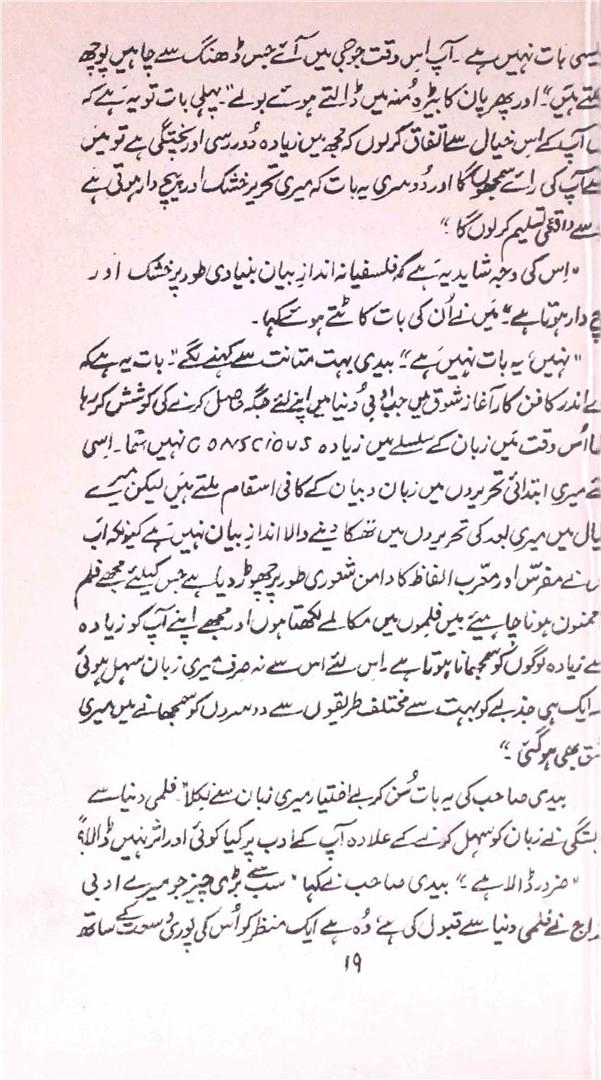 ایسی بات نہیں ہے۔ آپ اس وقت جو جی میں آئے جس ڈھنگ سے چاہیں پوچھ
سکتے ہیں" اور پھر پان کا بیڑہ مُنہ میں ڈالتے ہوئے بولے "پہلی بات تو یہ ہے کہ
آپ کے اس خیال سے اتفاق کر لوں کہ مجھ میں زیادہ دُور رسی اور پختگی ہے تو میں
اسے آپ کی رائے سمجھوں گا اور دُوسری یہ بات کہ میری تحریر خشک اور پیچ دار ہوتی ہے
اسے واقعی تسلیم کر لوں گا"
"اِس کی وجہ شاید یہ ہے کہ فلسفیانہ اندازِ بیان بنیادی طور پر خشک اور
پیچ دار ہوتا ہے" مَیں نے اُن کی بات کاٹتے ہوئے کہا۔
"نہیں، یہ بات نہیں ہے" بیدی بہت متانت سے کہنے لگے "بات یہ ہے کہ
میرے اندر کا فن کار آغازِ شوق میں جب ادبی دُنیا میں اپنے لئے جگہ حاصل کرنے کی کوشش کر رہا
تھا اُس وقت مَیں زبان کے سلسلے میں زیادہ CONSCIOUS نہیں تھا۔ اِسی
لئے میری ابتدائی تحریروں میں زبان و بیان کے کافی اسقام ملتے ہیں لیکن میرے
خیال میں میری بعد کی تحریروں میں تھکا دینے والا اندازِ بیان نہیں ہے کیونکہ اب
میں نے مفرّس اور معرّب الفاظ کا دامن شعوری طور پر چھوڑ دیا ہے جس کیلئے مجھے فلم
کا ممنون ہونا چاہیئے میں فلموں میں مکالمے لکھتا ہوں اور مجھے اپنے آپ کو زیادہ
سے زیادہ لوگوں کو سمجھانا ہوتا ہے۔ اس لئے اس سے نہ صرف میری زبان سہل ہوئی
۔ ایک ہی جذبے کو بہت سے مختلف طریقوں سے دوسروں کو سمجھانے میں میری
مشق بھی ہو گئی"
بیدی صاحب کی یہ بات سُن کر بے اختیار میری زبان سے نکلا "فلمی دنیا سے
وابستگی نے زبان کو سہل کرنے کے علاوہ آپ کے ادب پر کیا کوئی اور اثر نہیں ڈالا؟"
"ضرور ڈالا ہے" بیدی صاحب نے کہا "سب سے بڑی چیز جو میرے ادبی
مزاج نے فلمی دنیا سے قبول کی ہے وُہ ہے ایک منظر کو اُس کی پوری وسعت کے ساتھ
۱۹